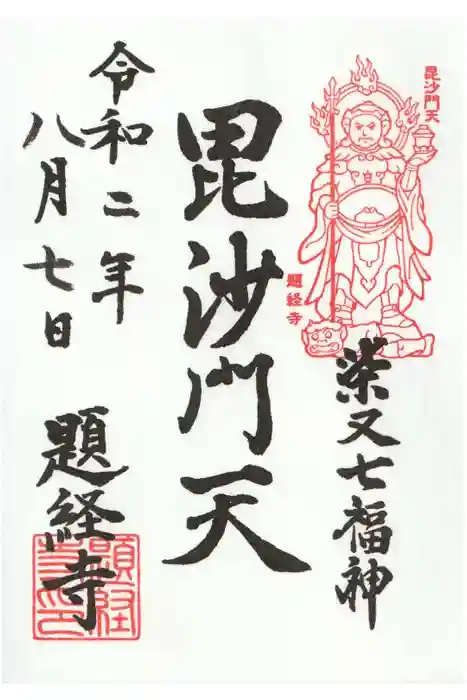 毘沙門天
題経寺
柴又七福神
毘沙門天
令和二年
八月七日
題経寺